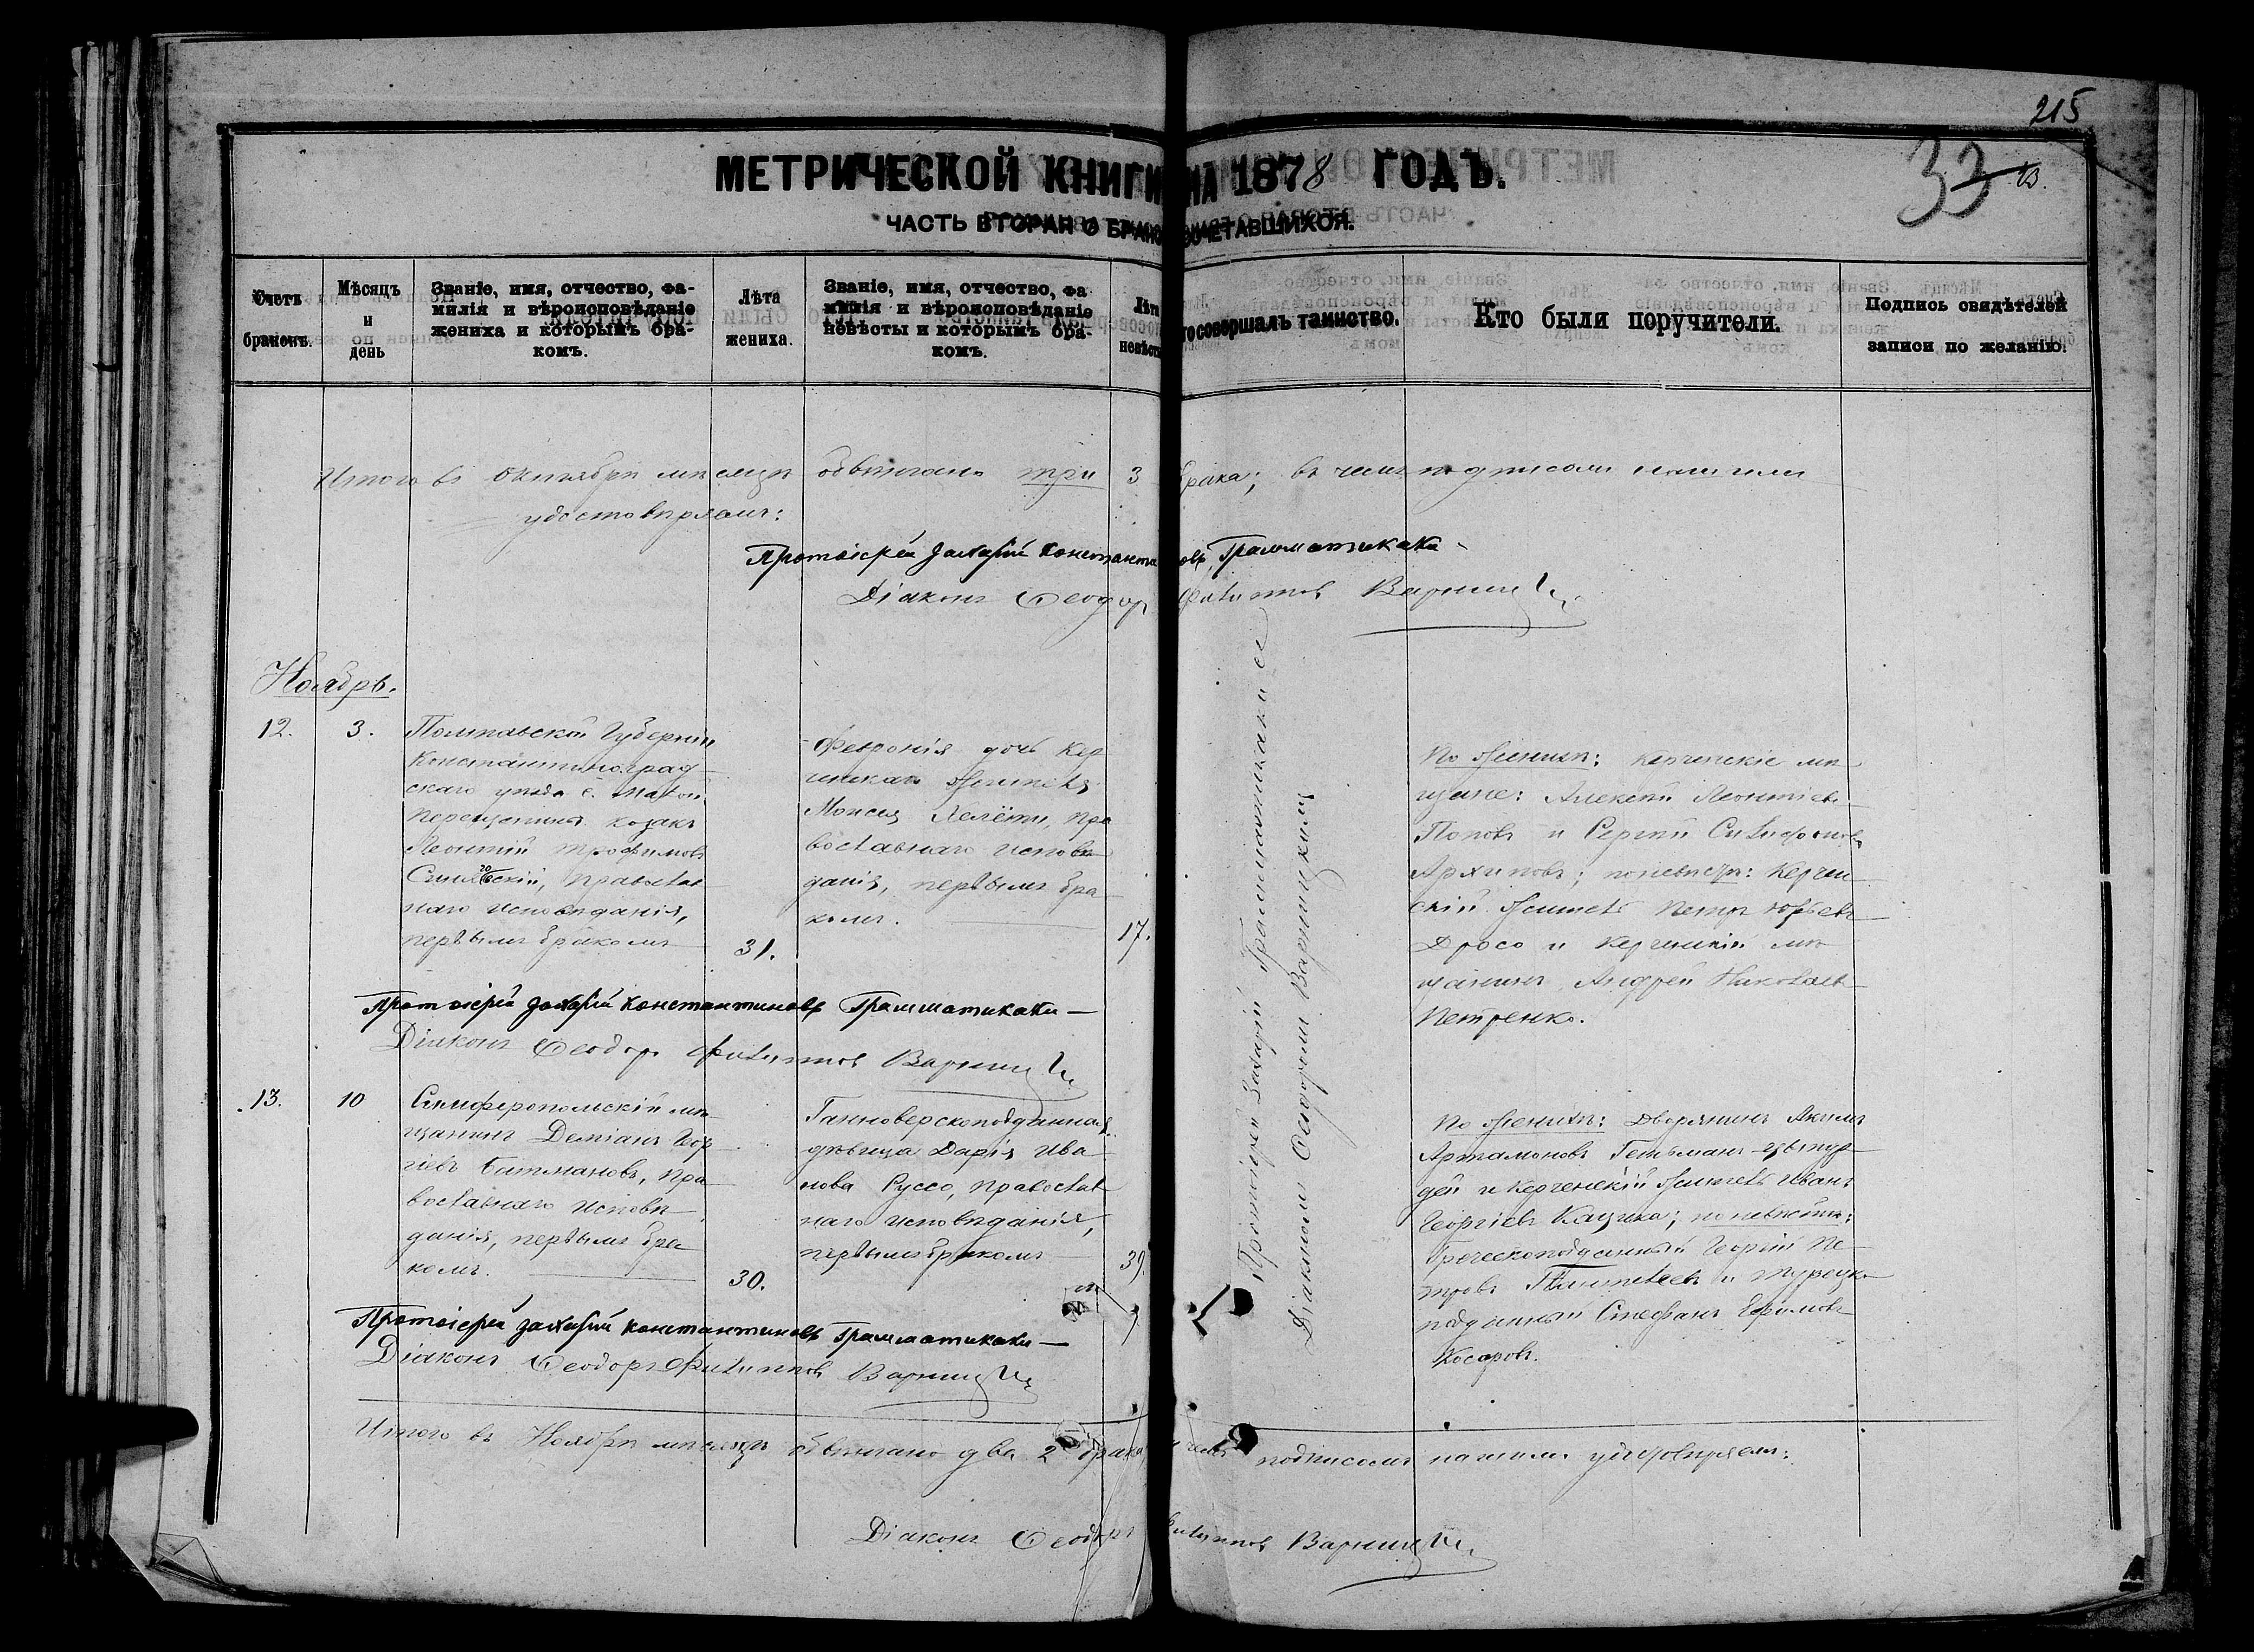 215
33
МЕТРИЧЕСКОЙ КНИГИ НА 1878 ГОДЪ.
ЧАСТЬ ВТОРАЯ О БРАКОСОЧЕТАВШИХСЯ.
Счетъ браковъ.
Мѣсяцъ и день
Званіе, имя, отчество, фа-
милія и вѣроисповѣданіе
жениха и которымъ бра-
комъ.
Лѣта жениха.
Званіе, имя, отчество, фа
милія и вѣроисповѣданіе
невѣсты и которымъ бра-
комъ.
Лѣта невѣсты
то совершалъ таинство.
Кто были поручители.
Подпись свидѣтелей
записи по желанію.
Итого въ октябрѣ мѣсяцѣ обвѣнчано три 3 брака; въ чемъ подписомъ нашимъ
удостовѣряемъ:
Протоіерей Захарій Константиновъ Грамматикаки
Діаконъ Ѳеодоръ Филипповъ
Ноябрь.
12.
3.
Полтавской Губерніи
Константиноград
скаго уѣзда с. Малой
Перещепина козакъ
Леонтій Трофимовъ
православ
наго исповѣданія,
первымъ бракомъ
31.
Февронія дочь Кер
ченскаго
Моисея пра
вославнаго исповѣ
данія, первымъ бра
комъ.
17.
Протоіерей Захарій Грамматикаки
Діакономъ Ѳеодоромъ
По женихѣ: керченскіе мѣ
щане: Алексѣй Леонтіевъ
Поповъ и Сергій
Архиповъ; по невѣстѣ: Керчен
скій Петръ Юрьевъ
Дросо и Керченскій мѣ
щанинъ Андрей Николаевъ
Петренко.
Протоіерей Захарій Константиновъ Грамматикаки
Діаконъ Ѳеодоръ Филипповъ
13.
10
Симферопольскій мѣ
щанинъ Деміанъ Геор
гіевъ Батмановъ, пра
вославнаго исповѣ
данія, первымъ бра
комъ.
30.
Ганноверскоподданная
дѣвица Дарія Ива
нова Руссо, православ
наго исповѣданія,
первымъ бракомъ
39.
По женихѣ: Дворянинъ Акимъ
Артамоновъ Гетьманъ
и Керченскій Иванъ
Георгіевъ Кацика; по невѣстѣ:
Греческоподданный Георгій Пе
тровъ и Турецко
подданный Стефанъ Ефимовъ
Косаровъ.
Протоіерей Захарій Константиновъ Грамматикаки
Діаконъ Ѳеодоръ Филипповъ
Итого въ Ноябрѣ мѣсяцѣ обвѣнчано два 2 брака чемъ подписомъ нашимъ удостовѣряемъ:
Діаконъ Ѳеодоръ Филипповъ